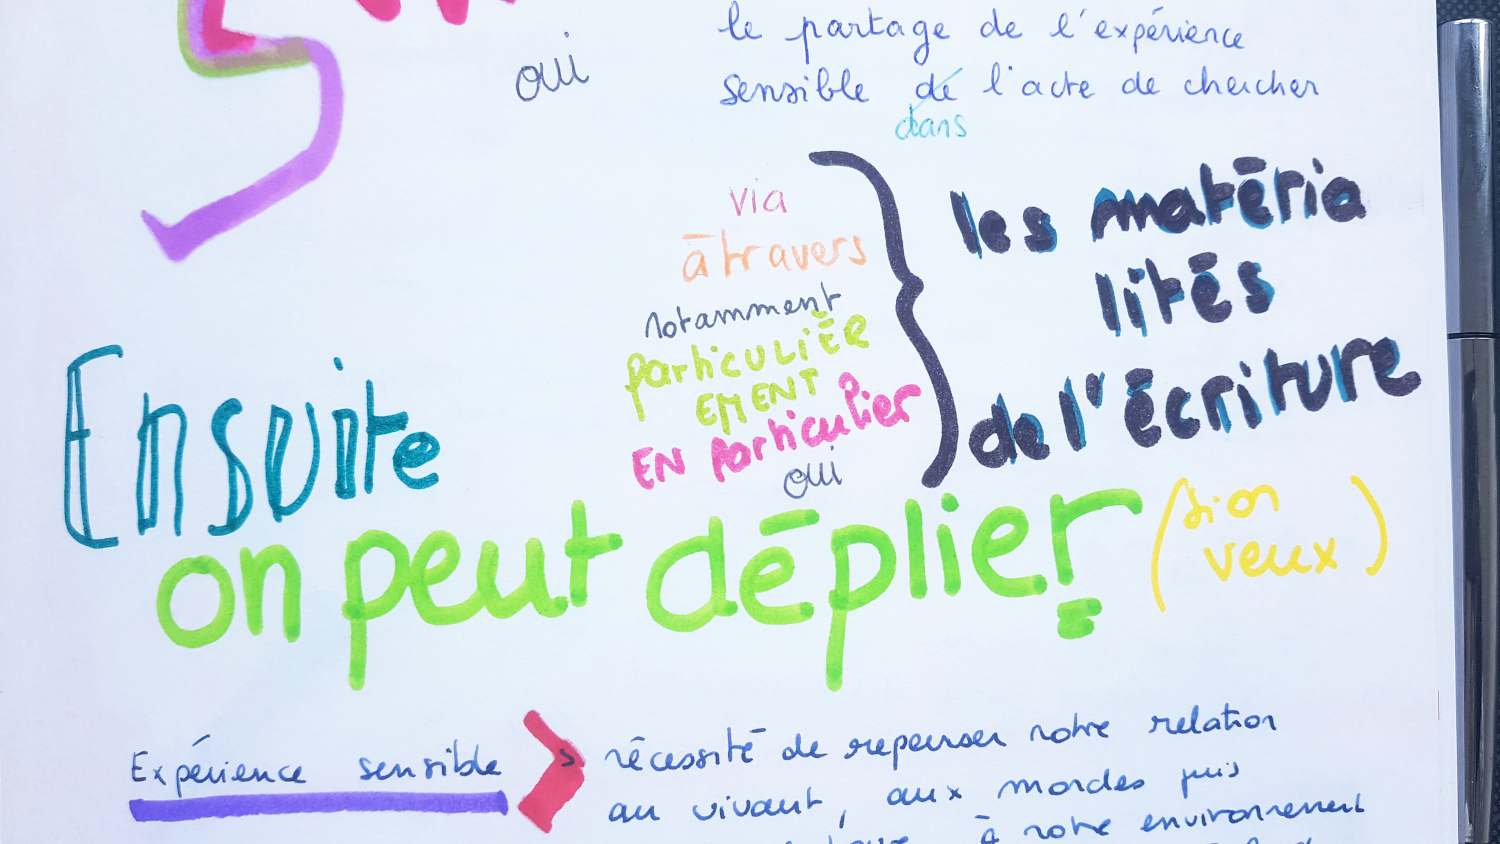 oui
le partage de l'expérience
sensible de l'acte de chercher
dans
via
à travers
notamment
particulièr
EMENT
EN particulier
oui
les matéria
lités
de l'écriture
Ensuite
on peut déplier
(si on
veux)
Expérience sensible
nécessité de repenser notre relation
au vivant, aux mondes puis
à notre environnement